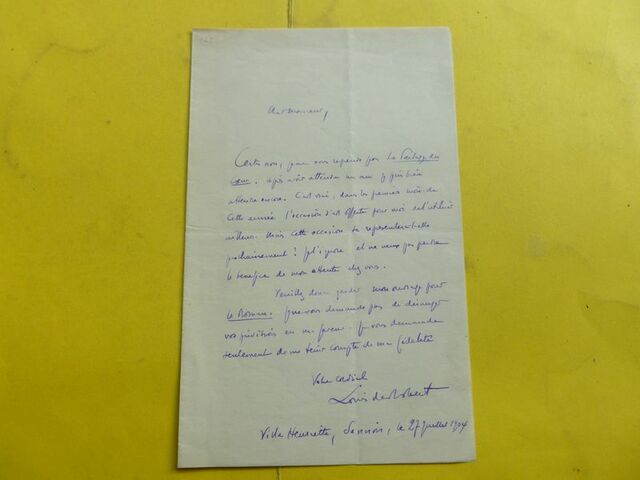 Cher Monsieur,
Certes non, je ne vous reprends pas Le Partage du
cœur. Après avoir attendu un an j'y puis bien
attendre encore. C'est vrai, dans les premiers mois de
cette année l'occasion s'est offerte pour moi de l'utiliser
ailleurs. Mais cette occasion se representera-t-elle
prochainement ? Je l'ignore et ne veux pas perdre
le bénéfice de mon attente chez vous.
Veuillez donc garder mon ouvrage pour
Le Roman. Je ne vous demande pas de déranger
vos prévisions en ma faveur. Je vous demande
seulement de me tenir compte de ma fidélité
Votre cordial
Louis de Robert
Villa Henriette, Sannois, le 27 juillet 1904